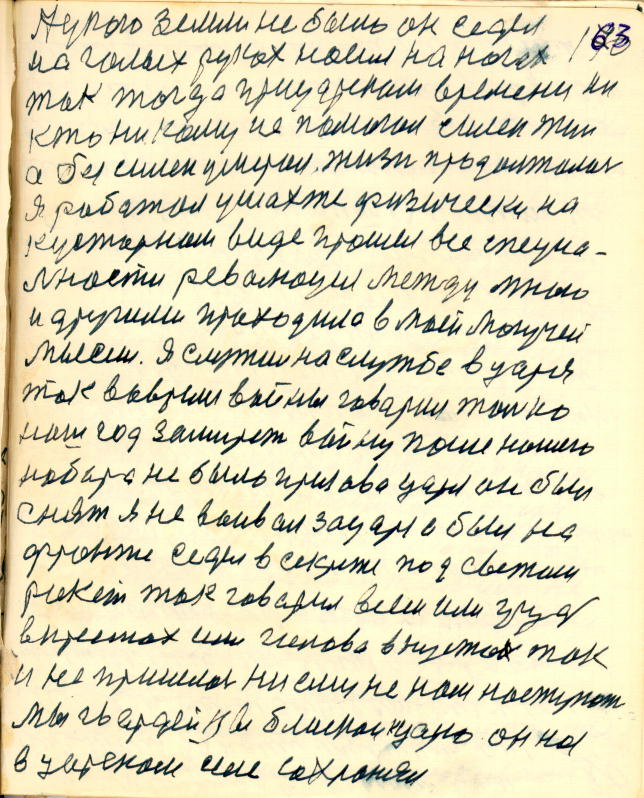 63
Чужого земли не было он седел
на голых руках носил на ногах
так тогда придреном времени ни
кто никому не помогал силен жил
а бессилен умерал. жизн продолжалас
Я работал ушахте физически на
кустарном виде прошел все специа-
лности революция между мною
и другими проходила в моей могучей
мысли. Я служил на службе в царя
так вовремя войны говарил толко
наш год замирет войну после нашего
набора не было призова царя он был
снят я не воивал зацаря а был на
фронте седел в секрете под светом
ракет так говарил всем или груд
в крестах или голова в кустах так
и не пришлос ни ему не нам наступат
мы гвардейцы близкои царю он на
в царском селе сохранял